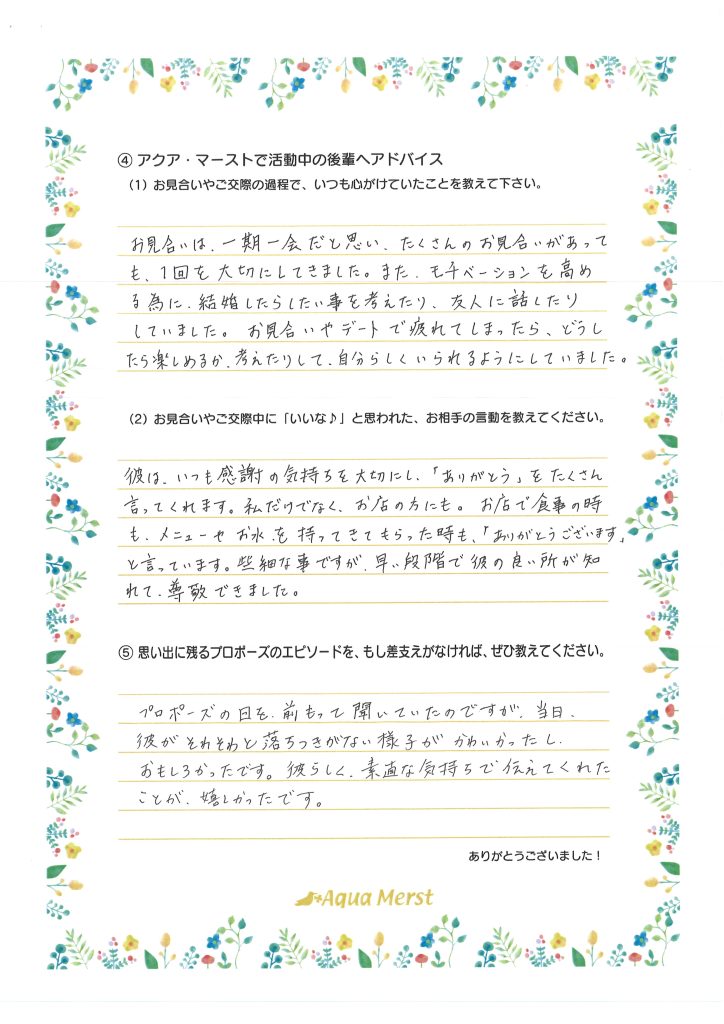 ④ アクア・マーストで活動中の後輩へアドバイス
（1）お見合いやご交際の過程で、いつも心がけていたことを教えて下さい。
お見合いは、一期一会だと思い、たくさんのお見合いがあって
も、1回を大切にしてきました。また、モチベーションを高め
る為に、結婚したらしたい事を考えたり、友人に話したり
していました。お見合いやデートで疲れてしまったら、どうし
たら楽しめるか、考えたりして、自分らしくいられるようにしていました。
（2）お見合いやご交際中に「いいな♪」と思われた、お相手の言動を教えてください。
彼は、いつも感謝の気持ちを大切にし、「ありがとう」をたくさん
言ってくれます。私だけでなく、お店の方にも。お店で食事の時
も、メニューやお水を持ってきてもらった時も、「ありがとうございます」
と言っています。些細な事ですが、早い段階で彼の良い所が知
れて、尊敬できました。
⑤ 思い出に残るプロポーズのエピソードを、もし差支えがなければ、ぜひ教えてください。
プロポーズの日を、前もって聞いていたのですが、当日、
彼がそわそわと落ちつきがない様子がかわいかったし、
おもしろかったです。彼らしく、素適な気持ちで伝えてくれた
ことが、嬉しかったです。
ありがとうございました！
Aqua Merst